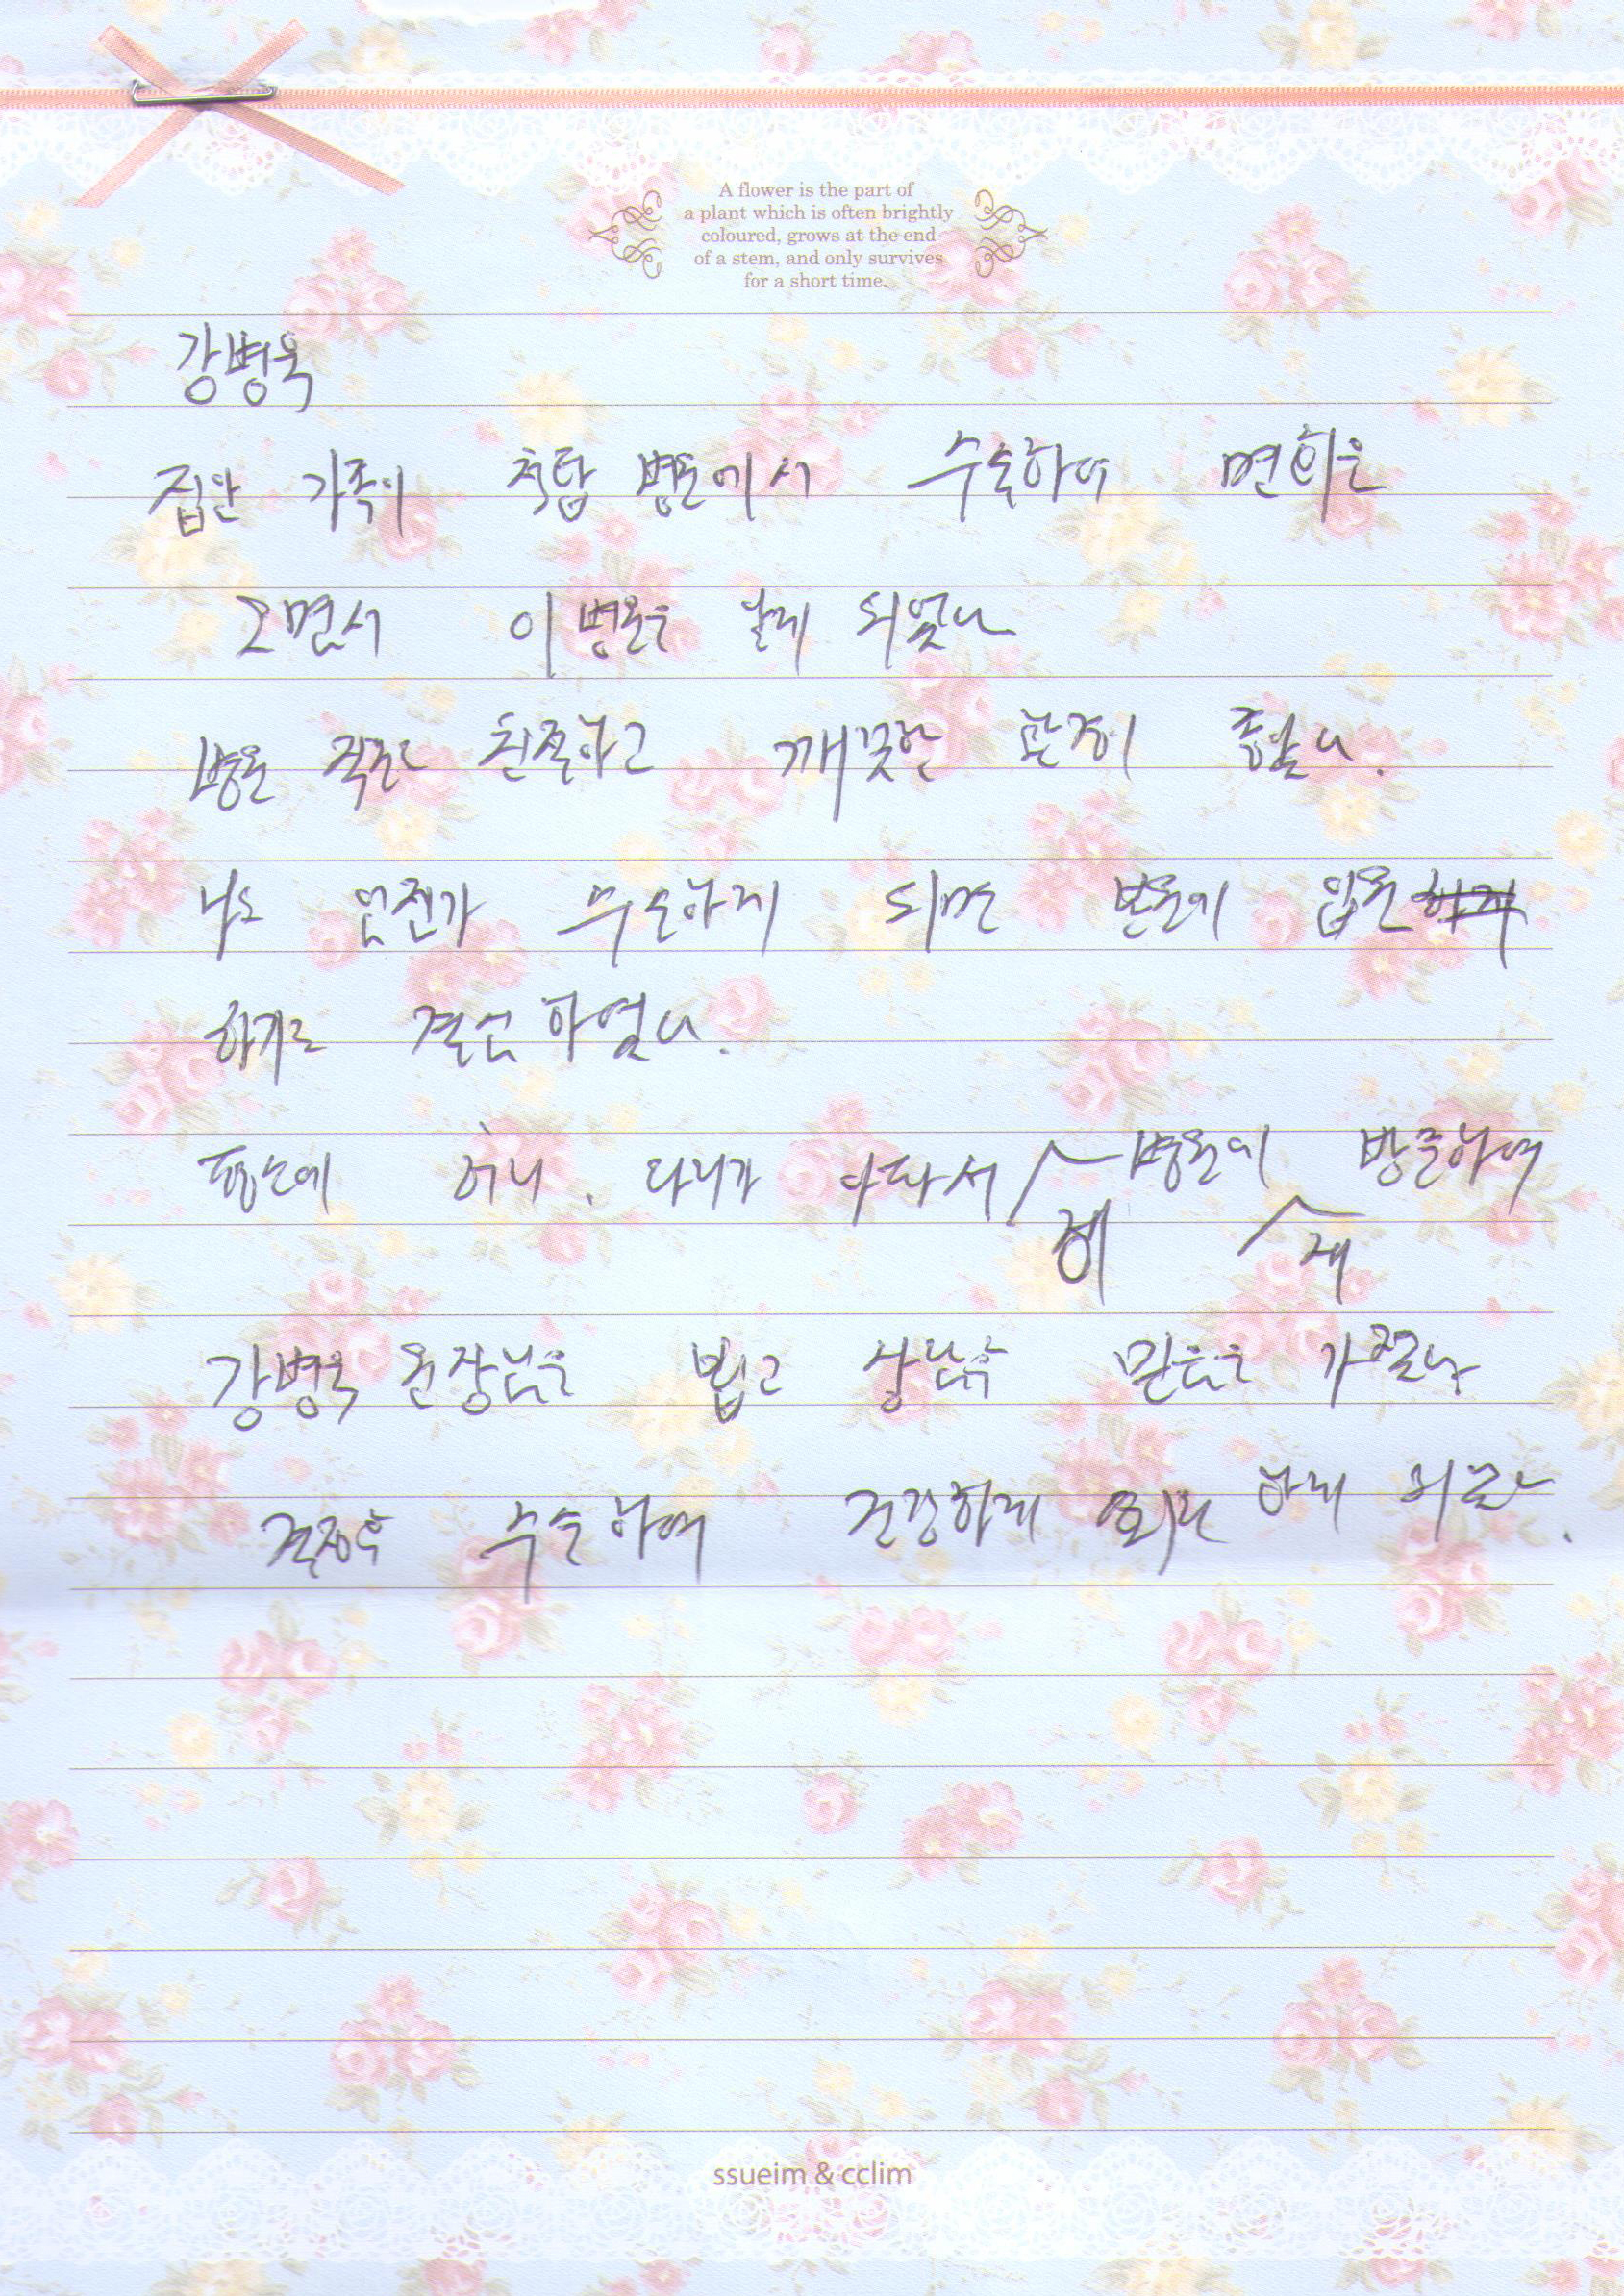 A flower is the part of
a plant which is often brightly
coloured, grows at the end
of a stem, and only survives
for a short time.
강병욱
집안 가족이 척탑 병원에서 수술하여 면회를
오면서 이 병원을 알게 되었다
병원 직원도 친절하고 깨끗한 환경이 좋았다.
나도 언젠가 수술하게 되면 본원에 입원
하기로 결심 하였다.
평소에 허리, 다리가 아파서 병원에 방문하여
재
강병욱 원장님을 뵙고 상담후 믿음을 가졌다
결정후 수술하여 건강하게 회복 하게 되었다.
ssueim & cclim